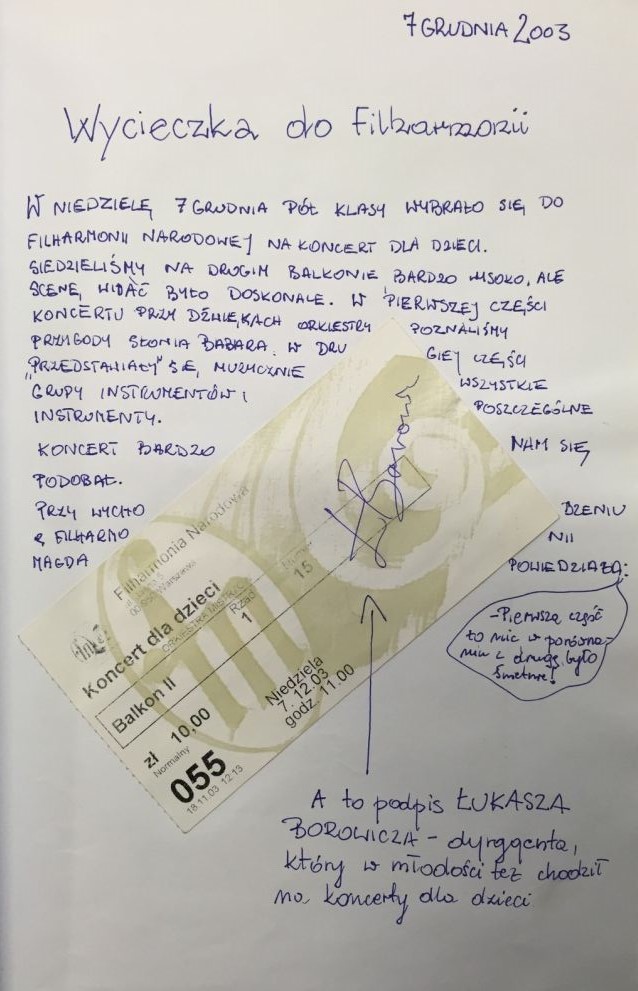 7 GRUDNIA 2003
Wycieczka do Filharmonii
W NIEDZIELĘ 7 GRUDNIA PÓŁ KLASY WYBRAŁO SIĘ DO
FILHARMONII NARODOWEJ NA KONCERT DLA DZIECI.
SIEDZIELIŚMY NA DRUGIM BALKONIE BARDZO WYSOKO, ALE
SCENĘ WIDAĆ BYŁO DOSKONALE. W PIERWSZEJ CZĘŚCI
KONCERTU PRZY DŹWIĘKACH ORKIESTRY POZNALIŚMY
PRZYGODY SŁONIA BABARA. W DRU GIEJ CZĘŚCI
„PRZEDSTAWIAŁY" SIĘ MUZYCZNIE WSZYSTKIE
GRUPY INSTRUMENTÓW I POSZCZEGÓLNE
INSTRUMENTY.
KONCERT BARDZO NAM SIĘ
PODOBAŁ.
PRZY WYCHO DZENIU
Z FILHARMO NII
MAGDA POWIEDZIAŁA:
-Pierwsza część
to nic w porówna-
niu z drugą, było
świetne!
Filharmonia Narodowa
Koncert dla dzieci
Balkon II
Rząd
1
15
zł 10,00
Normalny
Niedziela
7.12.03
godz. 11.00
055
18.11.03 12:13
A to podpis ŁUKASZA
BOROWICZA - dyrygenta,
który w młodości też chodził
na koncerty dla dzieci